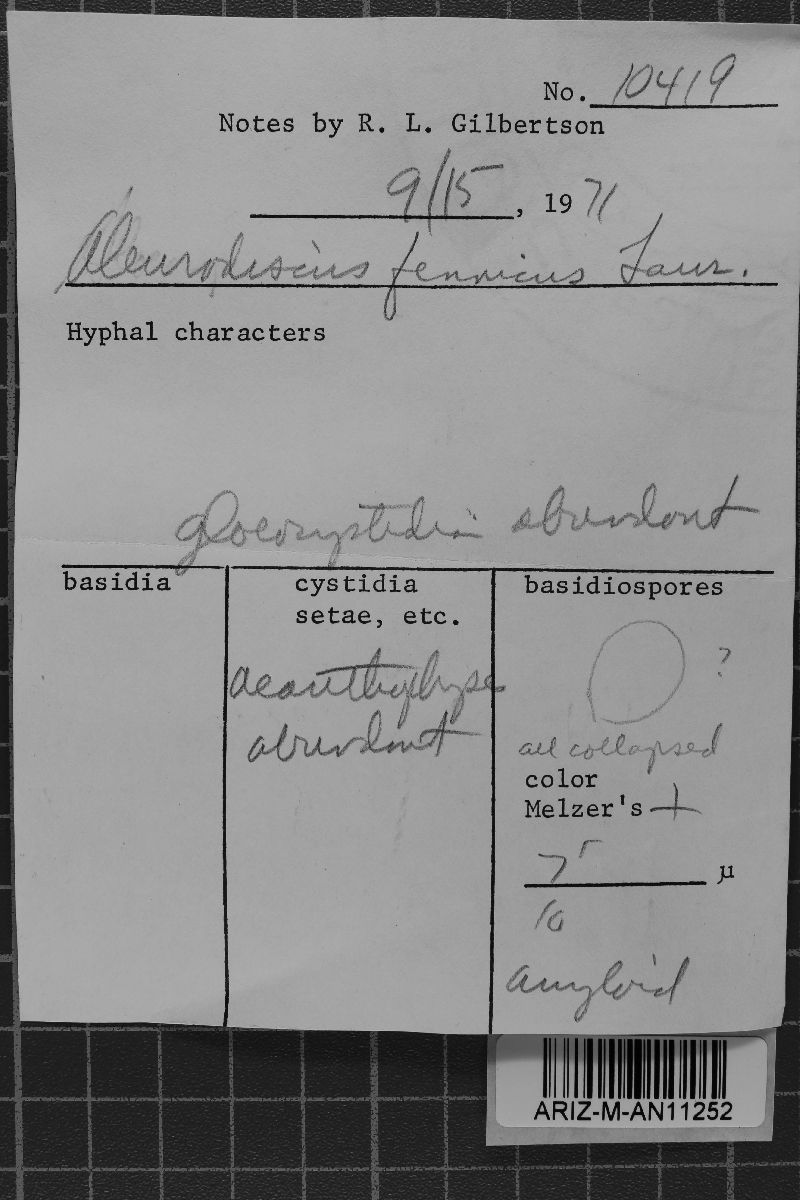 No. 10419
Notes by R. L. Gilbertson
9/15, 1971
Aleurodiscus fennicus Laur.
Hyphal characters
gloeocystidia abundant
basidia
cystidia
setae, etc.
acanthophyses
abundant
basidiospores
?
all collapsed
color
Melzer's +
µ
10
amyloid
ARIZ-M-AN11252